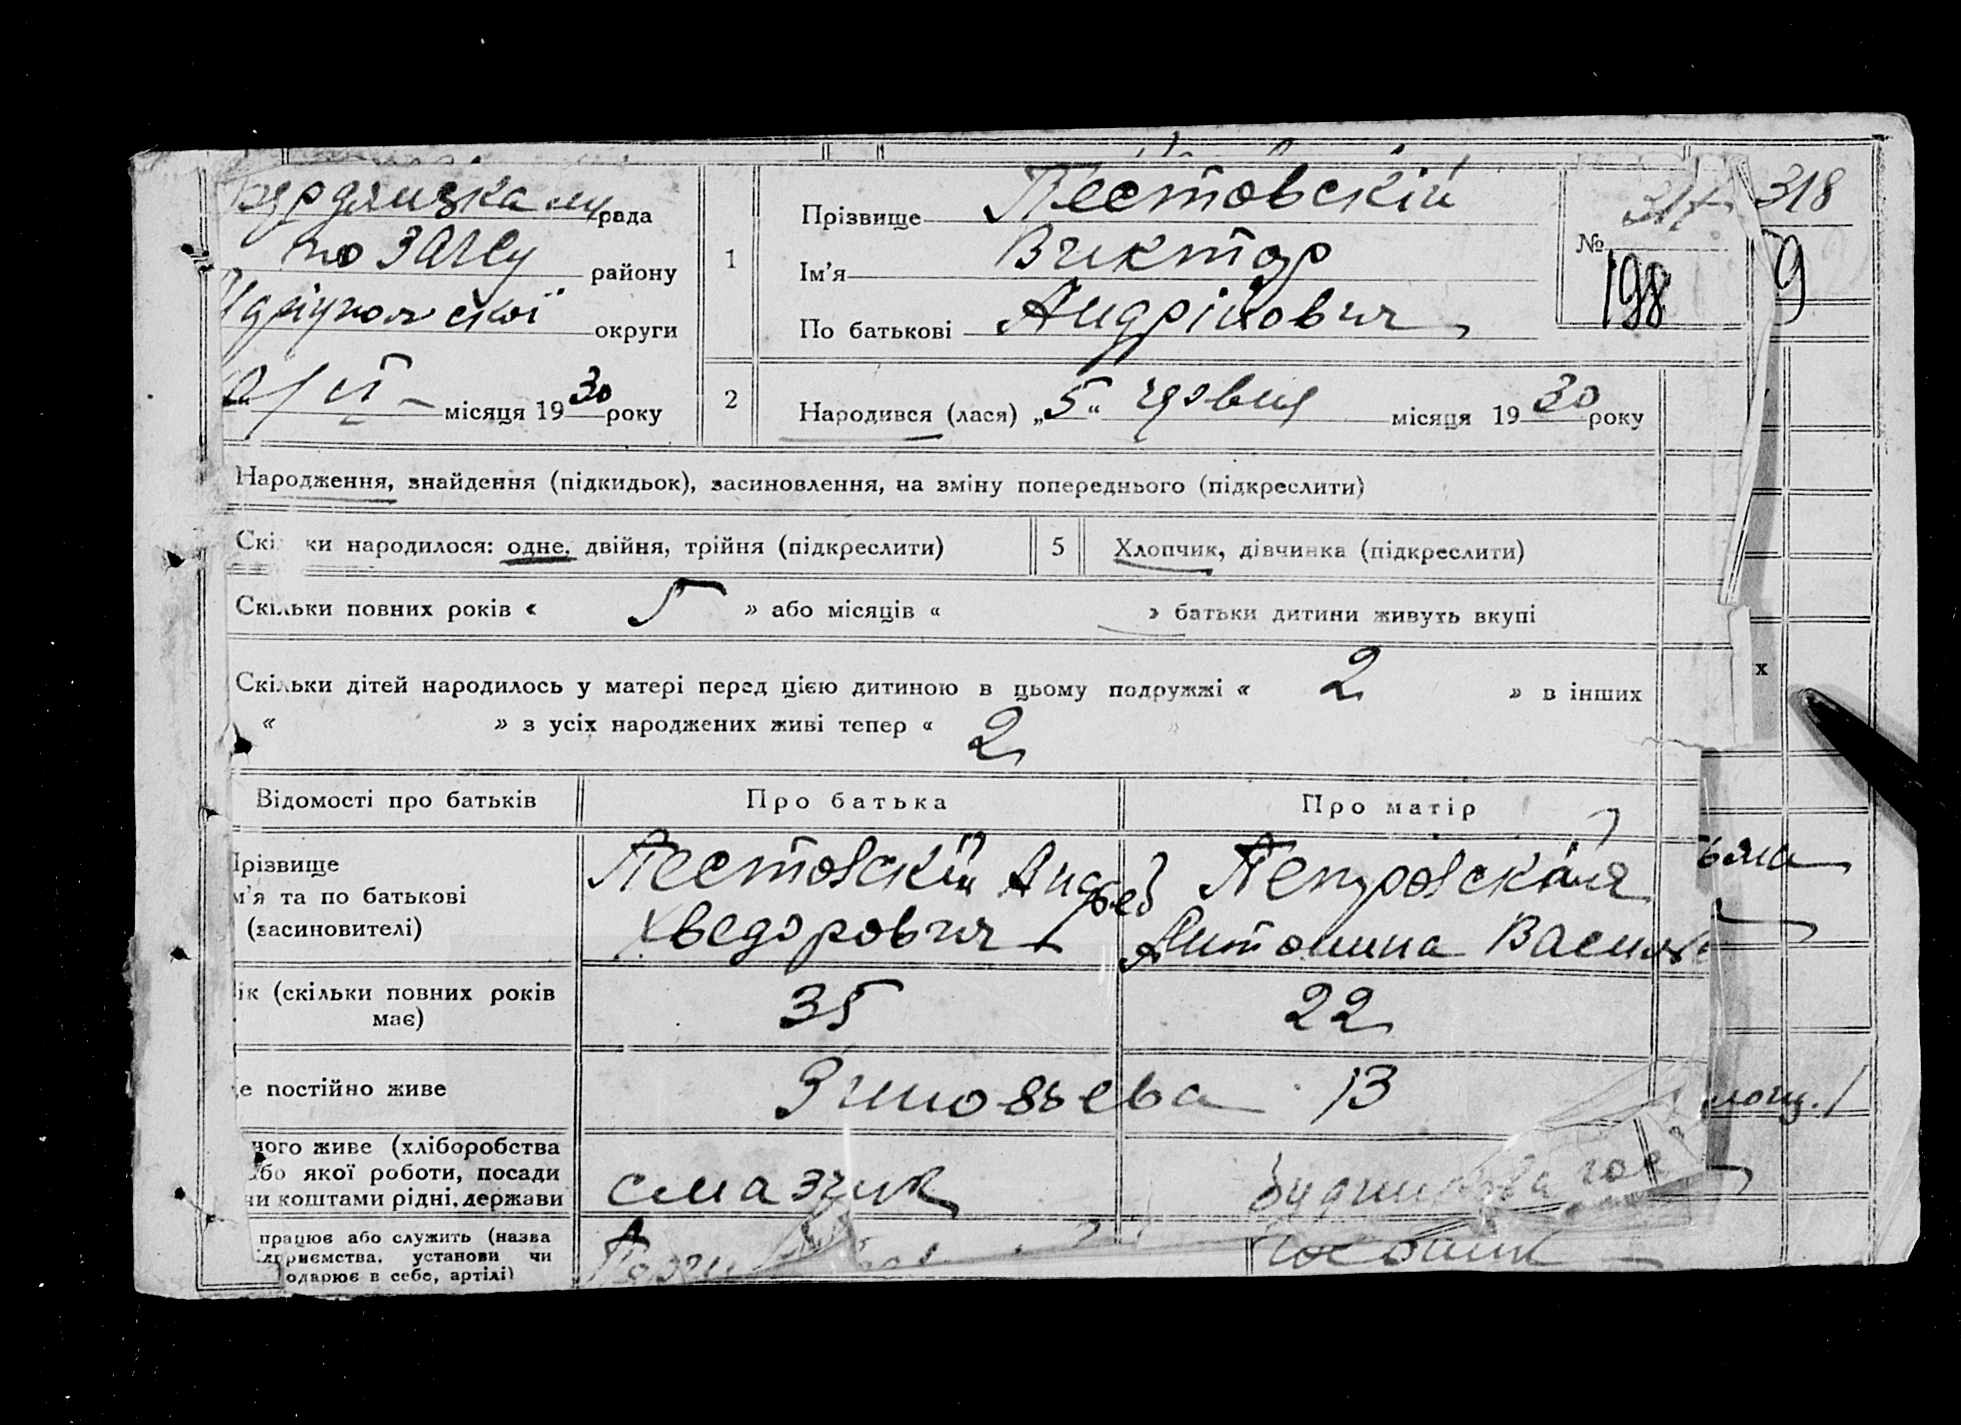 Бердянська м рада
по ЗАГСу району
округи
VI місяця 1930 року
1
Прізвище Пестовскій
Ім’я Виктор
По батькові Андрійович
317 318
№ 198 9
2
Народився (лася) „5“ червня місяця 1930 року
Народження, знайдення (підкидьок), засиновлення, на зміну попереднього (підкреслити)
Скі ки народилося: одне, двійня, трійня (підкреслити) 5 Хлопчик, дівчинка (підкреслити)
Скільки повних років « 5 » або місяців « » батьки дитини живуть вкупі
Скільки дітей народилось у матері перед цією дитиною в цьому подружжі « 2 » в інших х
« » з усіх народжених живі тепер « 2 »
Відомості про батьків Про батька Про матір
Прізвище Пестовскій Андрей Петровская
м’я та по батькові
(засиновителі) Хведорович Антонина Васильев
ік (скільки повних років
має) 35 22
е постійно живе Зиновьева 13
ного живе (хліборобства
або якої роботи, посади
чи коштами рідні, держави смазчик
працює або служить (назва
приємства, установи чи
одарює в себе, артілі)